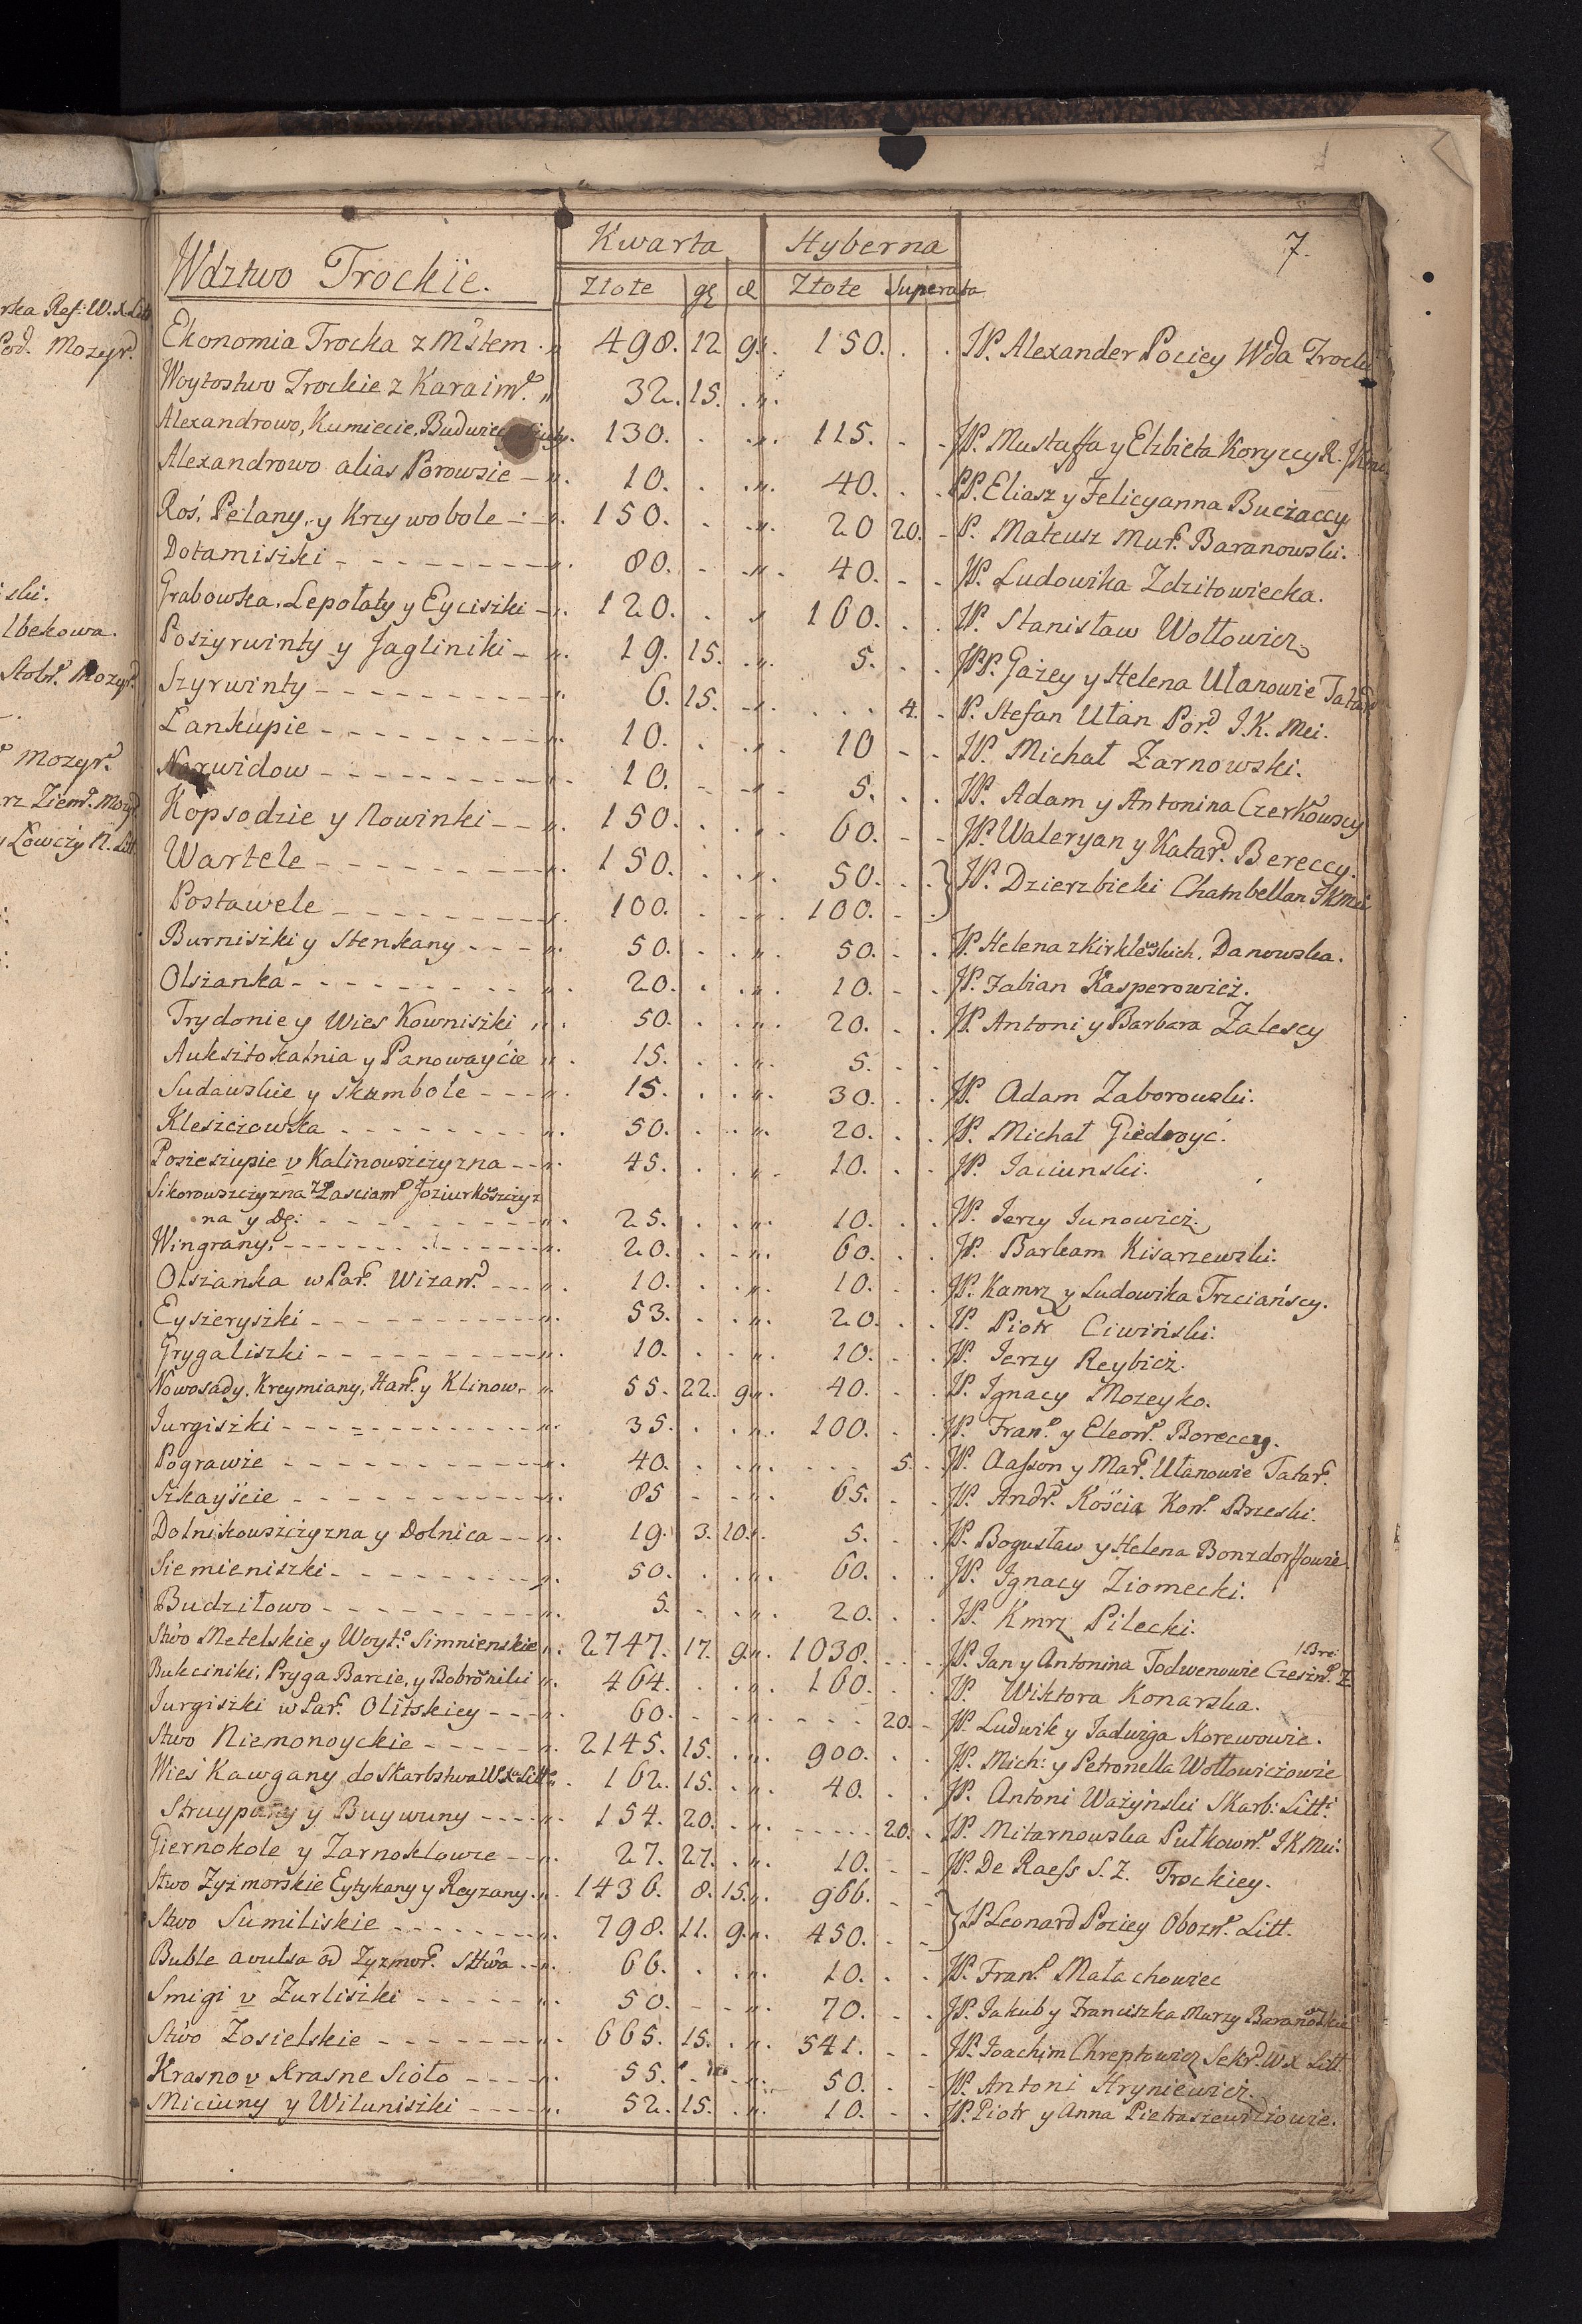 7.
Wdztwo Trockie. Kwarta Hyberna
Złote gr d Złote Superata
Ekonomia Trocka z Mstem 498. 12 9 150. JP. Alexander Pociey Wda Trocki
Woytostwo Trockie z Karaim. 32. 15.
Alexandrowo, Kumiecie, 130. 115. JP. Mustaffa y Elzbieta Koryccy R.
Alexandrowo alias Porowsie 10. 40. PP. Eliasz y Felicyanna Buczaccy
Roś, Pelany, y Krzywobole 150. 20 20. P. Mateusz Mur. Baranowski.
Dołamiszki 80. 40. JP. Ludowika Zdzitowiecka.
Grabowska, Lepołaty y Eyciszki 120. 160. JP. Stanisław Wołłowicz
Poszyrwinty y Jagliniki 19. 15. 5. JPP. Gazey y Helena Ułanowie Tatar
Szyrwinty 6. 15. 4. P. Stefan Ułan Por. J.K. Mei.
Łankupie 10. 10 JP. Michał Żarnowski.
Narwidow 10. 5. JP. Adam y Antonina Czerkowscy
Kopsodzie y Nowinki 150. 60. JP. Waleryan y Katar. Bereccy.
Wartele 150. 50. JP. Dzierzbicki Chambellan JKMci
Postawele 100. 100.
Burniszki y Stenkany 50. 50. JP. Helena z Kirklewskich Danowska.
Olszanka 20. 10. JP. Fabian Kasperowicz.
Trydonie y Wies Kowniszki 50. 20. JP. Antoni y Barbara Zalescy
Auksztokalnia y Panowayćie 15. 5.
Sudawskie y Skambole 15. 30. JP. Adam Zaborowski.
Kleszczowska 50. 20. JP. Michał Giedroyć.
Poszeszupie v Kalinowszczyzna 45. 10. JP. Jaciunski.
Sikorowszczyzna z Łasciam Joziurkowszczyz
na y Dg: 25. 10. JP. Jerzy Junowicz.
Wingrany, 20. 60. JP. Barkam Kisarzewski.
Olszanka w Par. Wizan. 10. 10. JP. Kamrz y Ludowika Trzciańscy.
Eyszeryszki 53. 20. JP. Piotr Ciwiński.
Grygaliszki 10. 10. JP. Jerzy Reybicz.
Nowosady, Kreymiany, Han. y Klinow. 55. 22. 9 40. JP. Ignacy Mozeyko.
Jurgiszki 35. 100. JP. Fran. y Eleon. Boreccy.
Pograwże 40. 5. JP. Aasson y Mar. Ułanowie Tatar.
Szkayście 85 65. JP. Andr. Kościa Kon. Brzeski.
Dolnikowszczyzna y Dolnica 19. 3. 10. 5. JP. Bogusław y Helena Bonzdorffowie
Siemieniszki 50. 60. JP. Ignacy Ziomecki.
Budziłowo 5. 20. JP. Kmrz Pilecki.
Stwo Metelskie y Woyt: Simnienskie 2747. 17. 9 1038. JP. Jan y Antonina Todwenowie Czeszn. Z. Brz:
Bukciniki, Pryga Barcie, y Bobrowniki 464. 160. JP. Wiktora Konarska.
Jurgiszki w Par. Olitskiey 60. 20. JP. Ludwik y Jadwiga Korewowie.
Stwo Niemonoyckie 2145. 15. 900. JP. Mich: y Petronella Wołłowiczowie
Wieś Kawgany do Skarbstwa WXLitt 162. 15. 40. JP. Antoni Ważyński Skarb: Litt:
Struypuny y Buywuny 154. 20. 20. JP. Mitarnowska Pułkown. JKMci.
Giernokole y Zarnoklowze 27. 27. 10. JP. De Raess S. Z. Trockiey.
Stwo Zyżmorskie Eytykany y Reyzany 1436. 8. 15. 966. JP Leonard Pociey Obozn. Litt.
Stwo Sumiliskie 798. 11. 9 450.
Buble avulsa od Zyzmor. Sttwa 66. 10. JP. Fran. Małachowiec
Smigi v Żurliszki 50. 70. JP. Jakub y Franciszka Murzy Baranowskie
Stwo Zosielskie 665. 15. 541. JP. Joachim Chreptowicz Sekr. WX Litt.
Krasno v Krasne Scioło 55. 50. JP. Antoni Hryniewicz.
Miciuny y Wiluniszki 52. 15. 10. JP. Piotr y Anna Pietraszewiczowie.